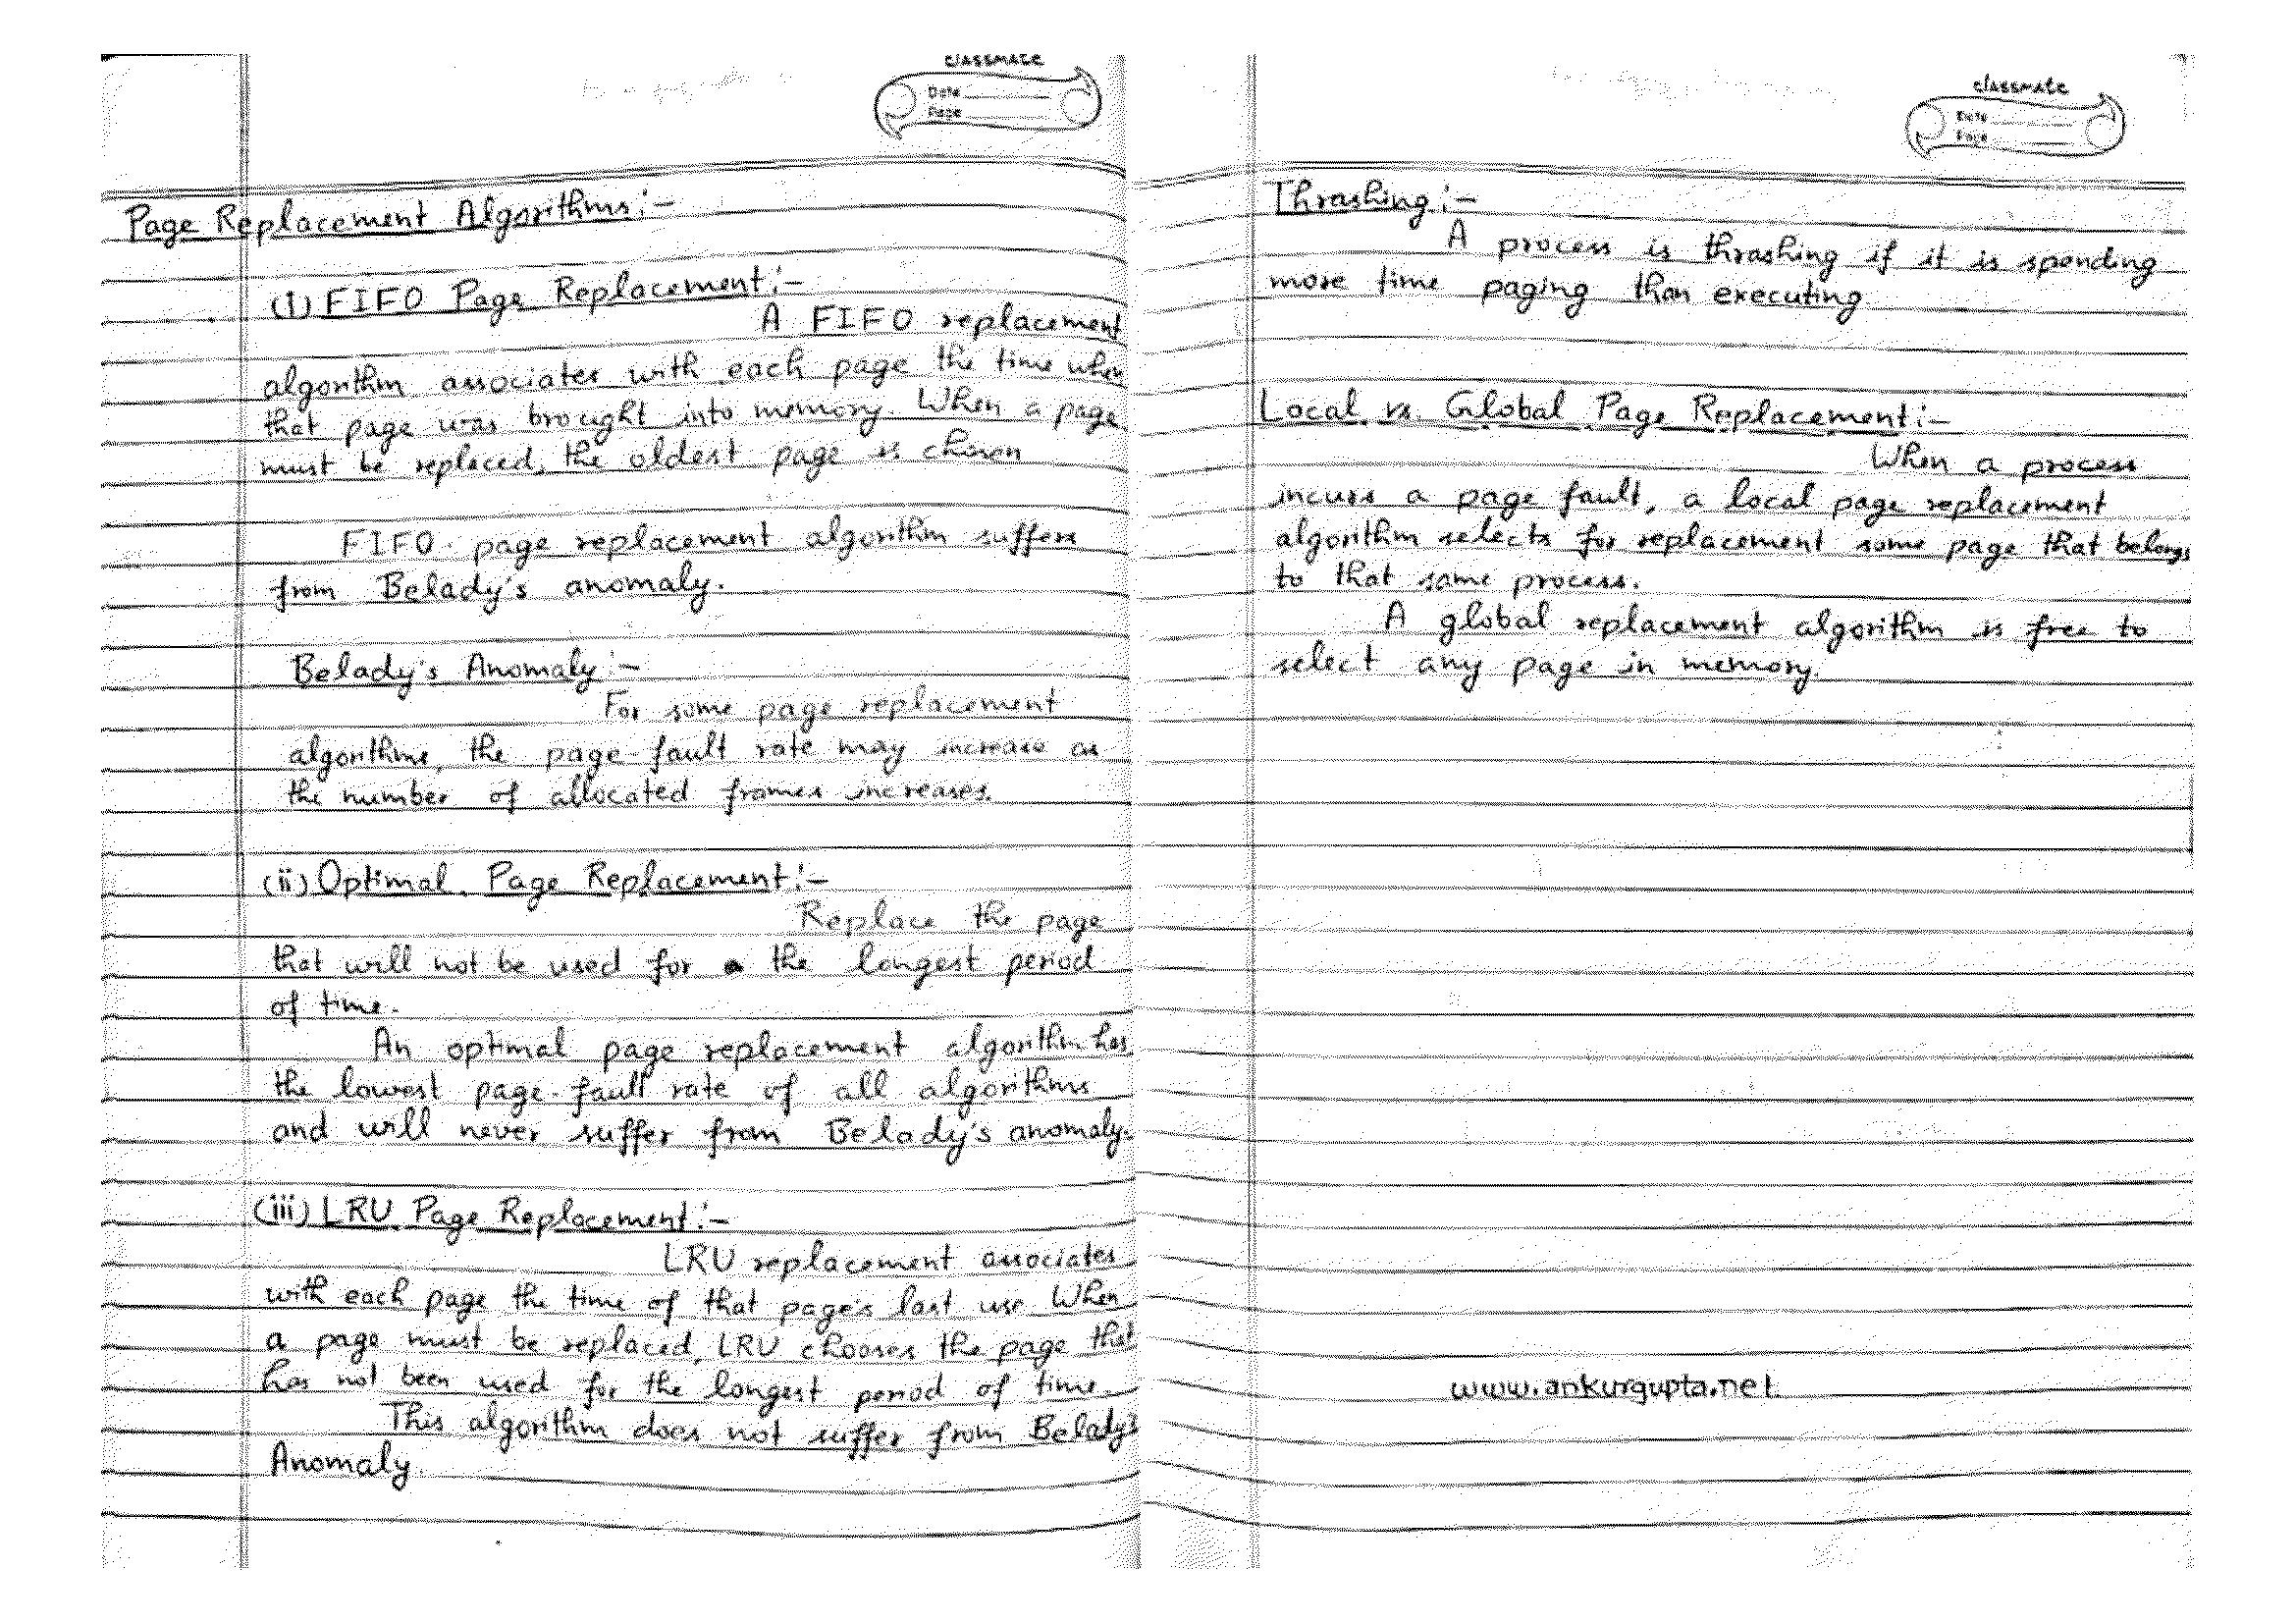 classmate
Date
Page
Page Replacement Algorithms:-
(i) FIFO Page Replacement:-
A FIFO replacement
algorithm associates with each page the time when
that page was brought into memory. When a page
must be replaced, the oldest page is chosen
FIFO page replacement algorithm suffers
from Belady's anomaly.
Belady's Anomaly:-
For some page replacement
algorithms, the page-fault rate may increase as
the number of allocated frames increases.
(ii) Optimal Page Replacement:-
Replace the page
that will not be used for the longest period
of time.
An optimal page replacement algorithm has
the lowest page-fault rate of all algorithms
and will never suffer from Belady's anomaly.
(iii) LRU Page Replacement:-
LRU replacement associates
with each page the time of that page's last use. When
a page must be replaced, LRU chooses the page that
has not been used for the longest period of time.
This algorithm does not suffer from Belady's
Anomaly.
classmate
Date
Page
Thrashing:-
A process is thrashing if it is spending
more time paging than executing.
Local vs. Global Page Replacement:-
When a process
incurs a page fault, a local page replacement
algorithm selects for replacement some page that belongs
to that same process.
A global replacement algorithm is free to
select any page in memory.
www.ankurgupta.net